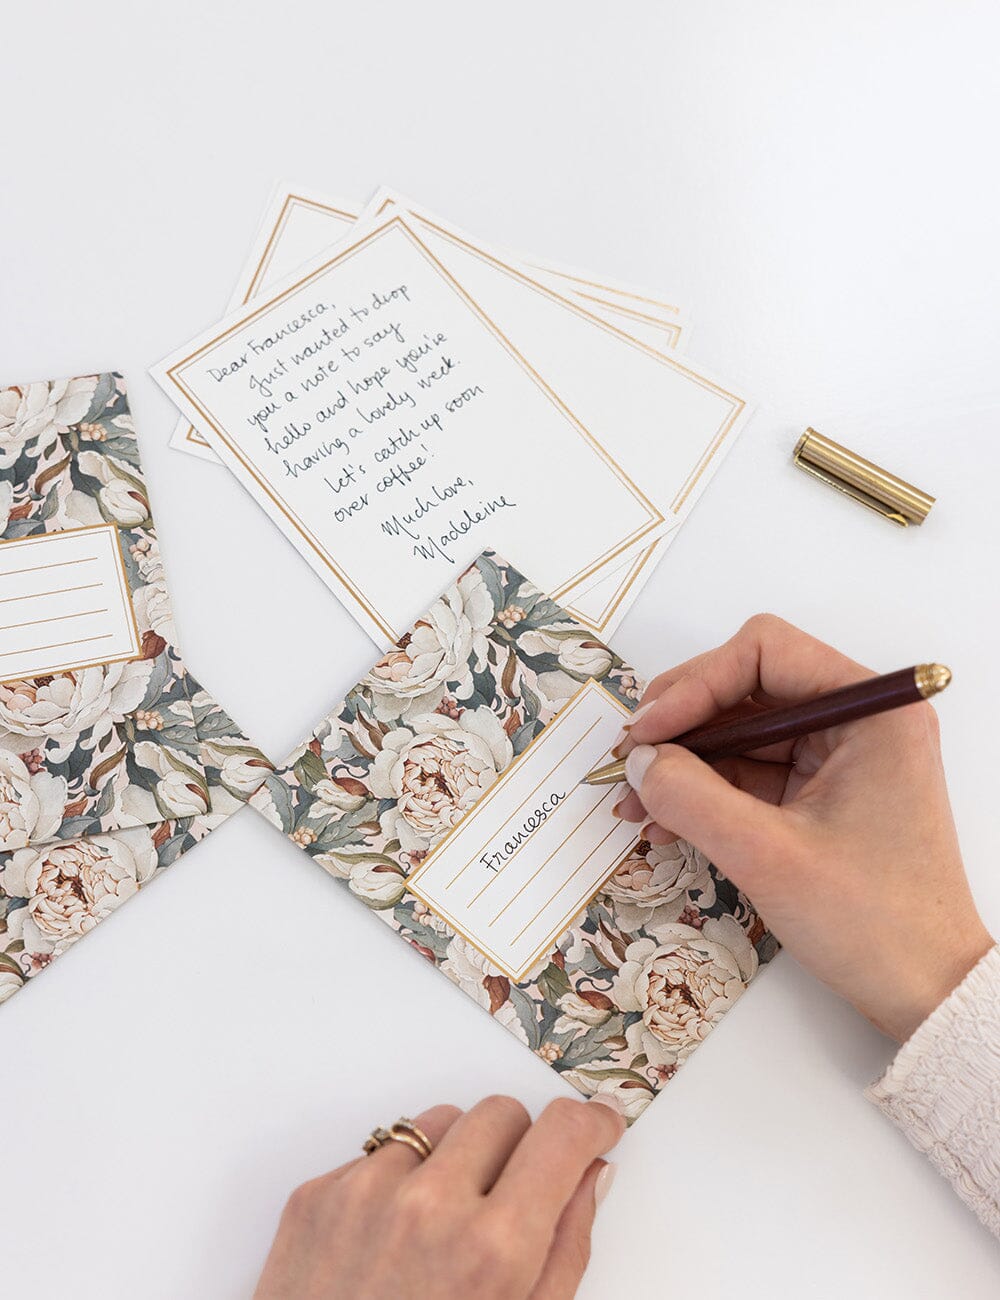 Dear Francesca,
Just wanted to drop
you a note to say
hello and hope you've
having a lovely week.
Let's catch up soon
over coffee!
Much love,
Madeleine
Francesca